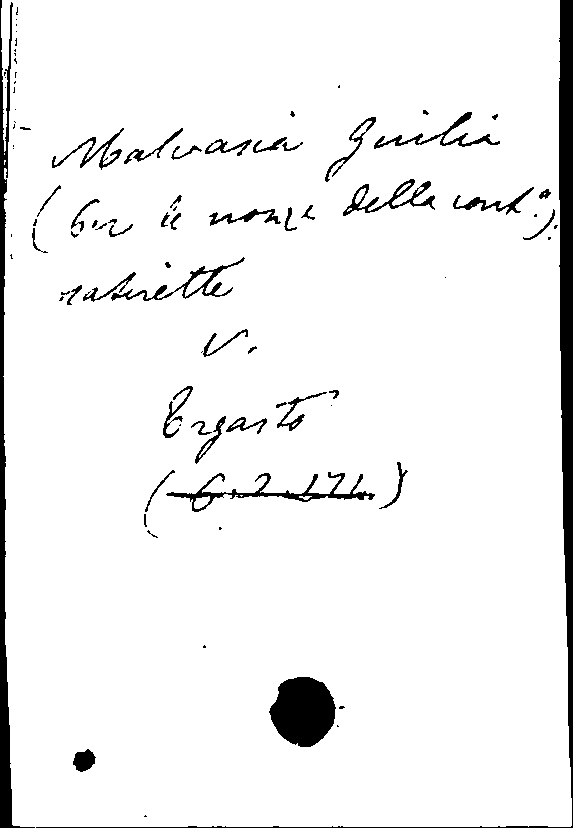 Malvasia Giulia
(Per le nozze della cont.ª).
satirette
V.
Ergasto
(6.2.171.)